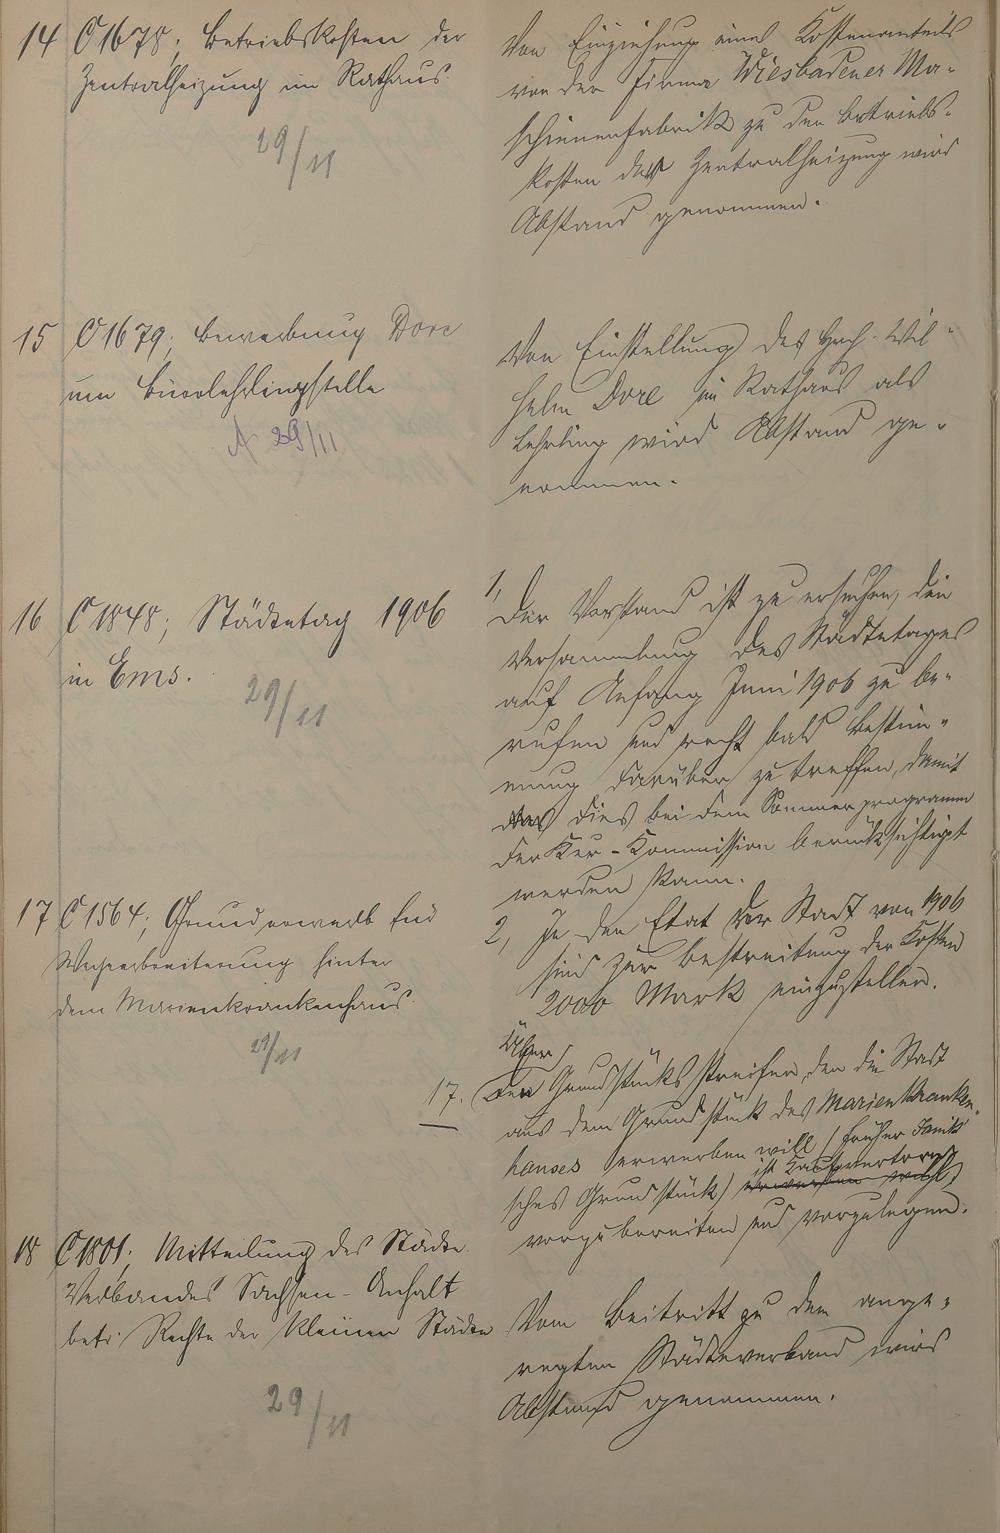 14 C 1678; Betriebskosten der
Zentralheizung im Rathaus.
29/11
Von Einziehung eines Kostenanteils
von der Firma Wiesbadener Ma-
schienenfabrik zu den Betriebs-
kosten der Zentralheizung wird
Abstand genommen.
15 C 1679; Bewerbung Dore
um Bürolehrlingsstelle
A 29/11
Von Einstellung des Hch. Wil-
helm Dore im Rathaus als
Lehrling wird Abstand ge-
nommen.
16 C 1848; Städtetag 1906
in Ems.
29/11
1, Der Vorstand ist zu ersuchen, die
Versammlung des Städtetages
auf Anfang Juni 1906 zu be-
rufen und recht bald Bestim-
mung darüber zu treffen, damit
dies bei dem Sommerprogramm
der Kur-Kommission berücksichtigt
werden kann.
2, In den Etat der Stadt von 1906
sind zur Bestreitung der Kosten
2000 Mark einzustellen.
17 C 1564; Grunderwerb für
Wegverbreiterung hinter
dem Marienkrankenhaus.
29/11
17. Über den Grundstücksstreifen, den die Stadt
aus dem Grundstück des Marienkranken-
hauses erwerben will (früher
sches Grundstück) ist Kaufvertrag
vorzubereiten und vorzulegen.
18 C 1801; Mitteilung des Städte-
Verbandes Sachsen-Anhalt
betr. Rechte der kleinen Städte
29/11
Vom Beitritt zu dem ange-
regten Städteverband wird
Abstand genommen.